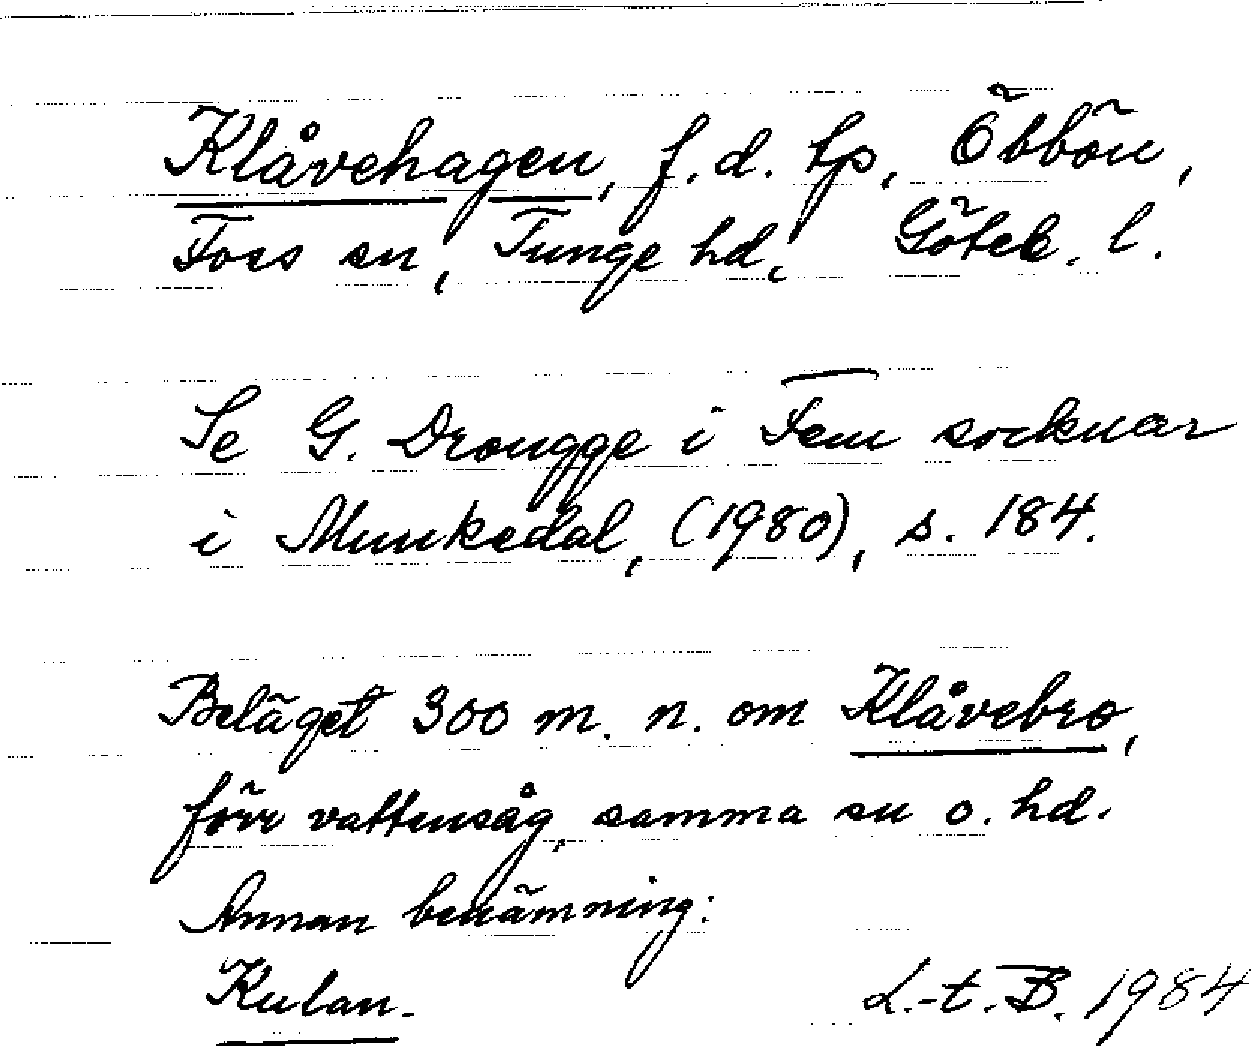 Klåvehagen, f.d. tp, Öbbön,
Foss sn, Tunge hd, Göteb. l.
Se G. Drougge i Fem socknar
i Munkedal, (1980), s. 184.
Beläget 300 m. n. om Klåvebro,
förr vattensåg, samma sn o. hd.
Annan benämning:
Kulan.
L.-t. B. 1984